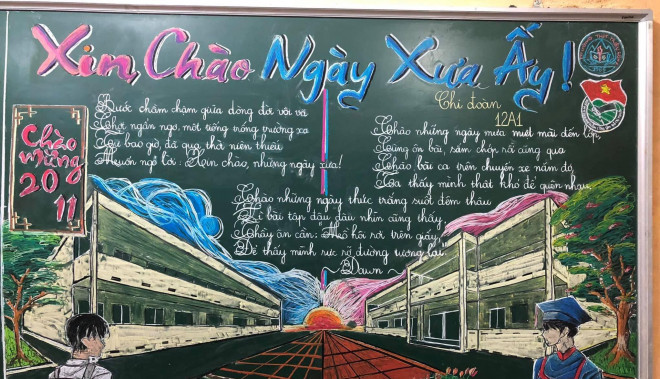 Xin Chào Ngày Xưa Ấy!
Chi đoàn
12A1
Chào
mừng
20
11
Bước chầm chậm giữa dòng đời vội vã
Chợt ngẩn ngơ, một tiếng trống trường xa
Từ bao giờ, đã qua, thời niên thiếu
Muốn ngỏ lời: Xin chào, những ngày xưa!
Chào những ngày mưa miệt mài đến lớp,
Cùng ôn bài, sấm chớp rồi cũng qua
Chào bài ca trên chuyến xe năm đó
Ta thấy mình thật khó để quên nhau
Chào những ngày thức trắng suốt đêm thâu
Vì bài tập dẫu dầu nhìn cũng thấy
Thầy ân cần: "Mồ hôi rơi trên giấy,
Để thấy mình rực rỡ đường tương lai"
~ Dawn ~